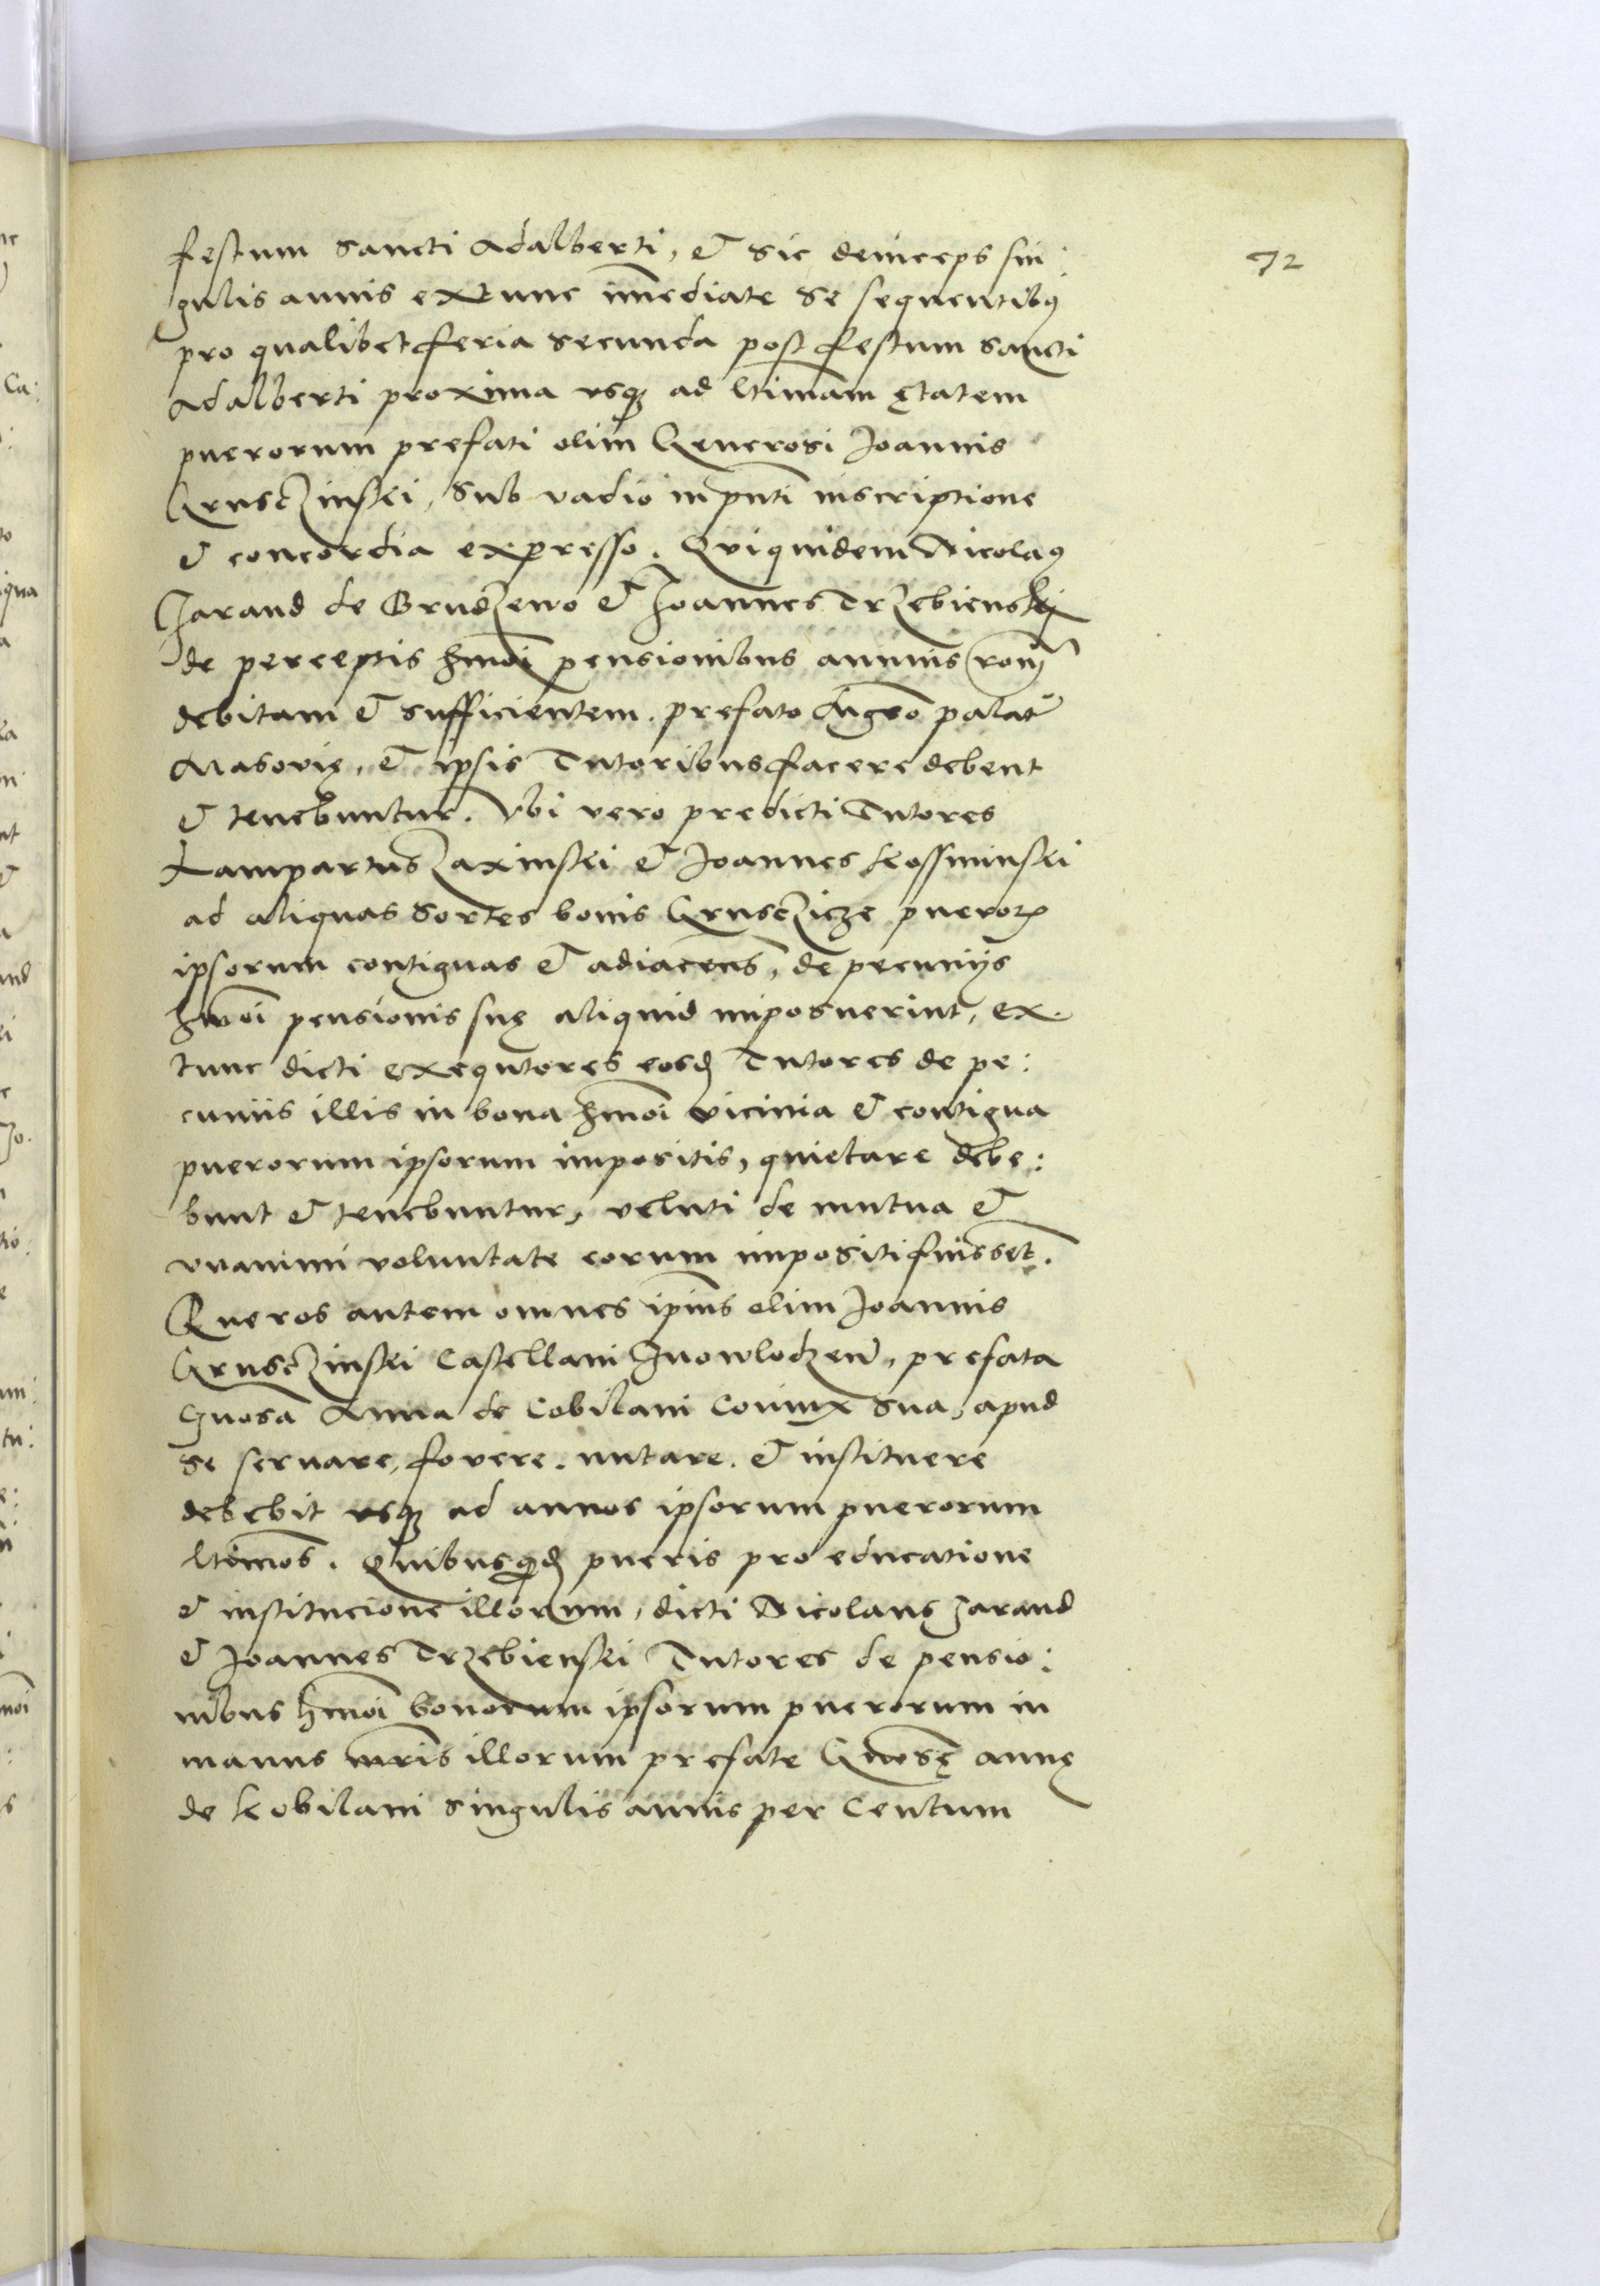 72
festum Sancti Adalberti, et sic deinceps sin:
gulis annis extunc im̄ediate se sequentibꝰ
pro qualibet feria secunda post festum Sancti
Adalberti proxima vsqꝫ ad l̄timam ętatem
puerorum prefati olim Generosi Joannis
Gruscʒinski, sub vadio in pn̄ti inscriptione
et concordia expresso. Quiquidem Nicolaꝰ
Jarand de Brudzewo et Joannes Trzebienskij
de perceptis hm̄oi pensionibus annuis rōnē
debitam et sufficientem. prefato Mag͞co palat̄
Masovię, et ipsis Tutoribus facere debent
et tenebuntur. Vbi vero predicti Tutores
Lampartus Zaxinski et Joannes Kossminski
ad aliquas sortes bonis Gruscʒicze pueroꝝ
ipsorum contiguas et adiacen̄s, de pecuniis
hm̄oi pensionis suę aliquid imposuerint, ex
tunc dicti exequtores eosd̄ Tutores de pe:
cuniis illis in bona hm̄oi vicinia et contigua
puerorum ipsorum impositis, quietare debe:
bunt et tenebuntur, veluti de mutua et
vnanimi voluntate eorum impositi fuissēt.
Pueros autem omnes ipīus olim Joannis
Gruscʒinski Castellani Junowlodzen̄, prefata
Gn̄osa Anna de Cobilani Coniux sua, apud
se seruare, fovere. nutare. et instituere
debebit vsqꝫ ad annos ipsorum puerorum
l̄timos. Quibusqd̄ pueris pro educatione
et institucione illorum, dicti Nicolaus Jarand
et Joannes Trzebienski Tutores de pensio:
nibus hm̄oi bonorum ipsorum puerorum in
manus mr̄is illorum prefate Gn̄osę Annę
de Kobilani singulis annis per Centum